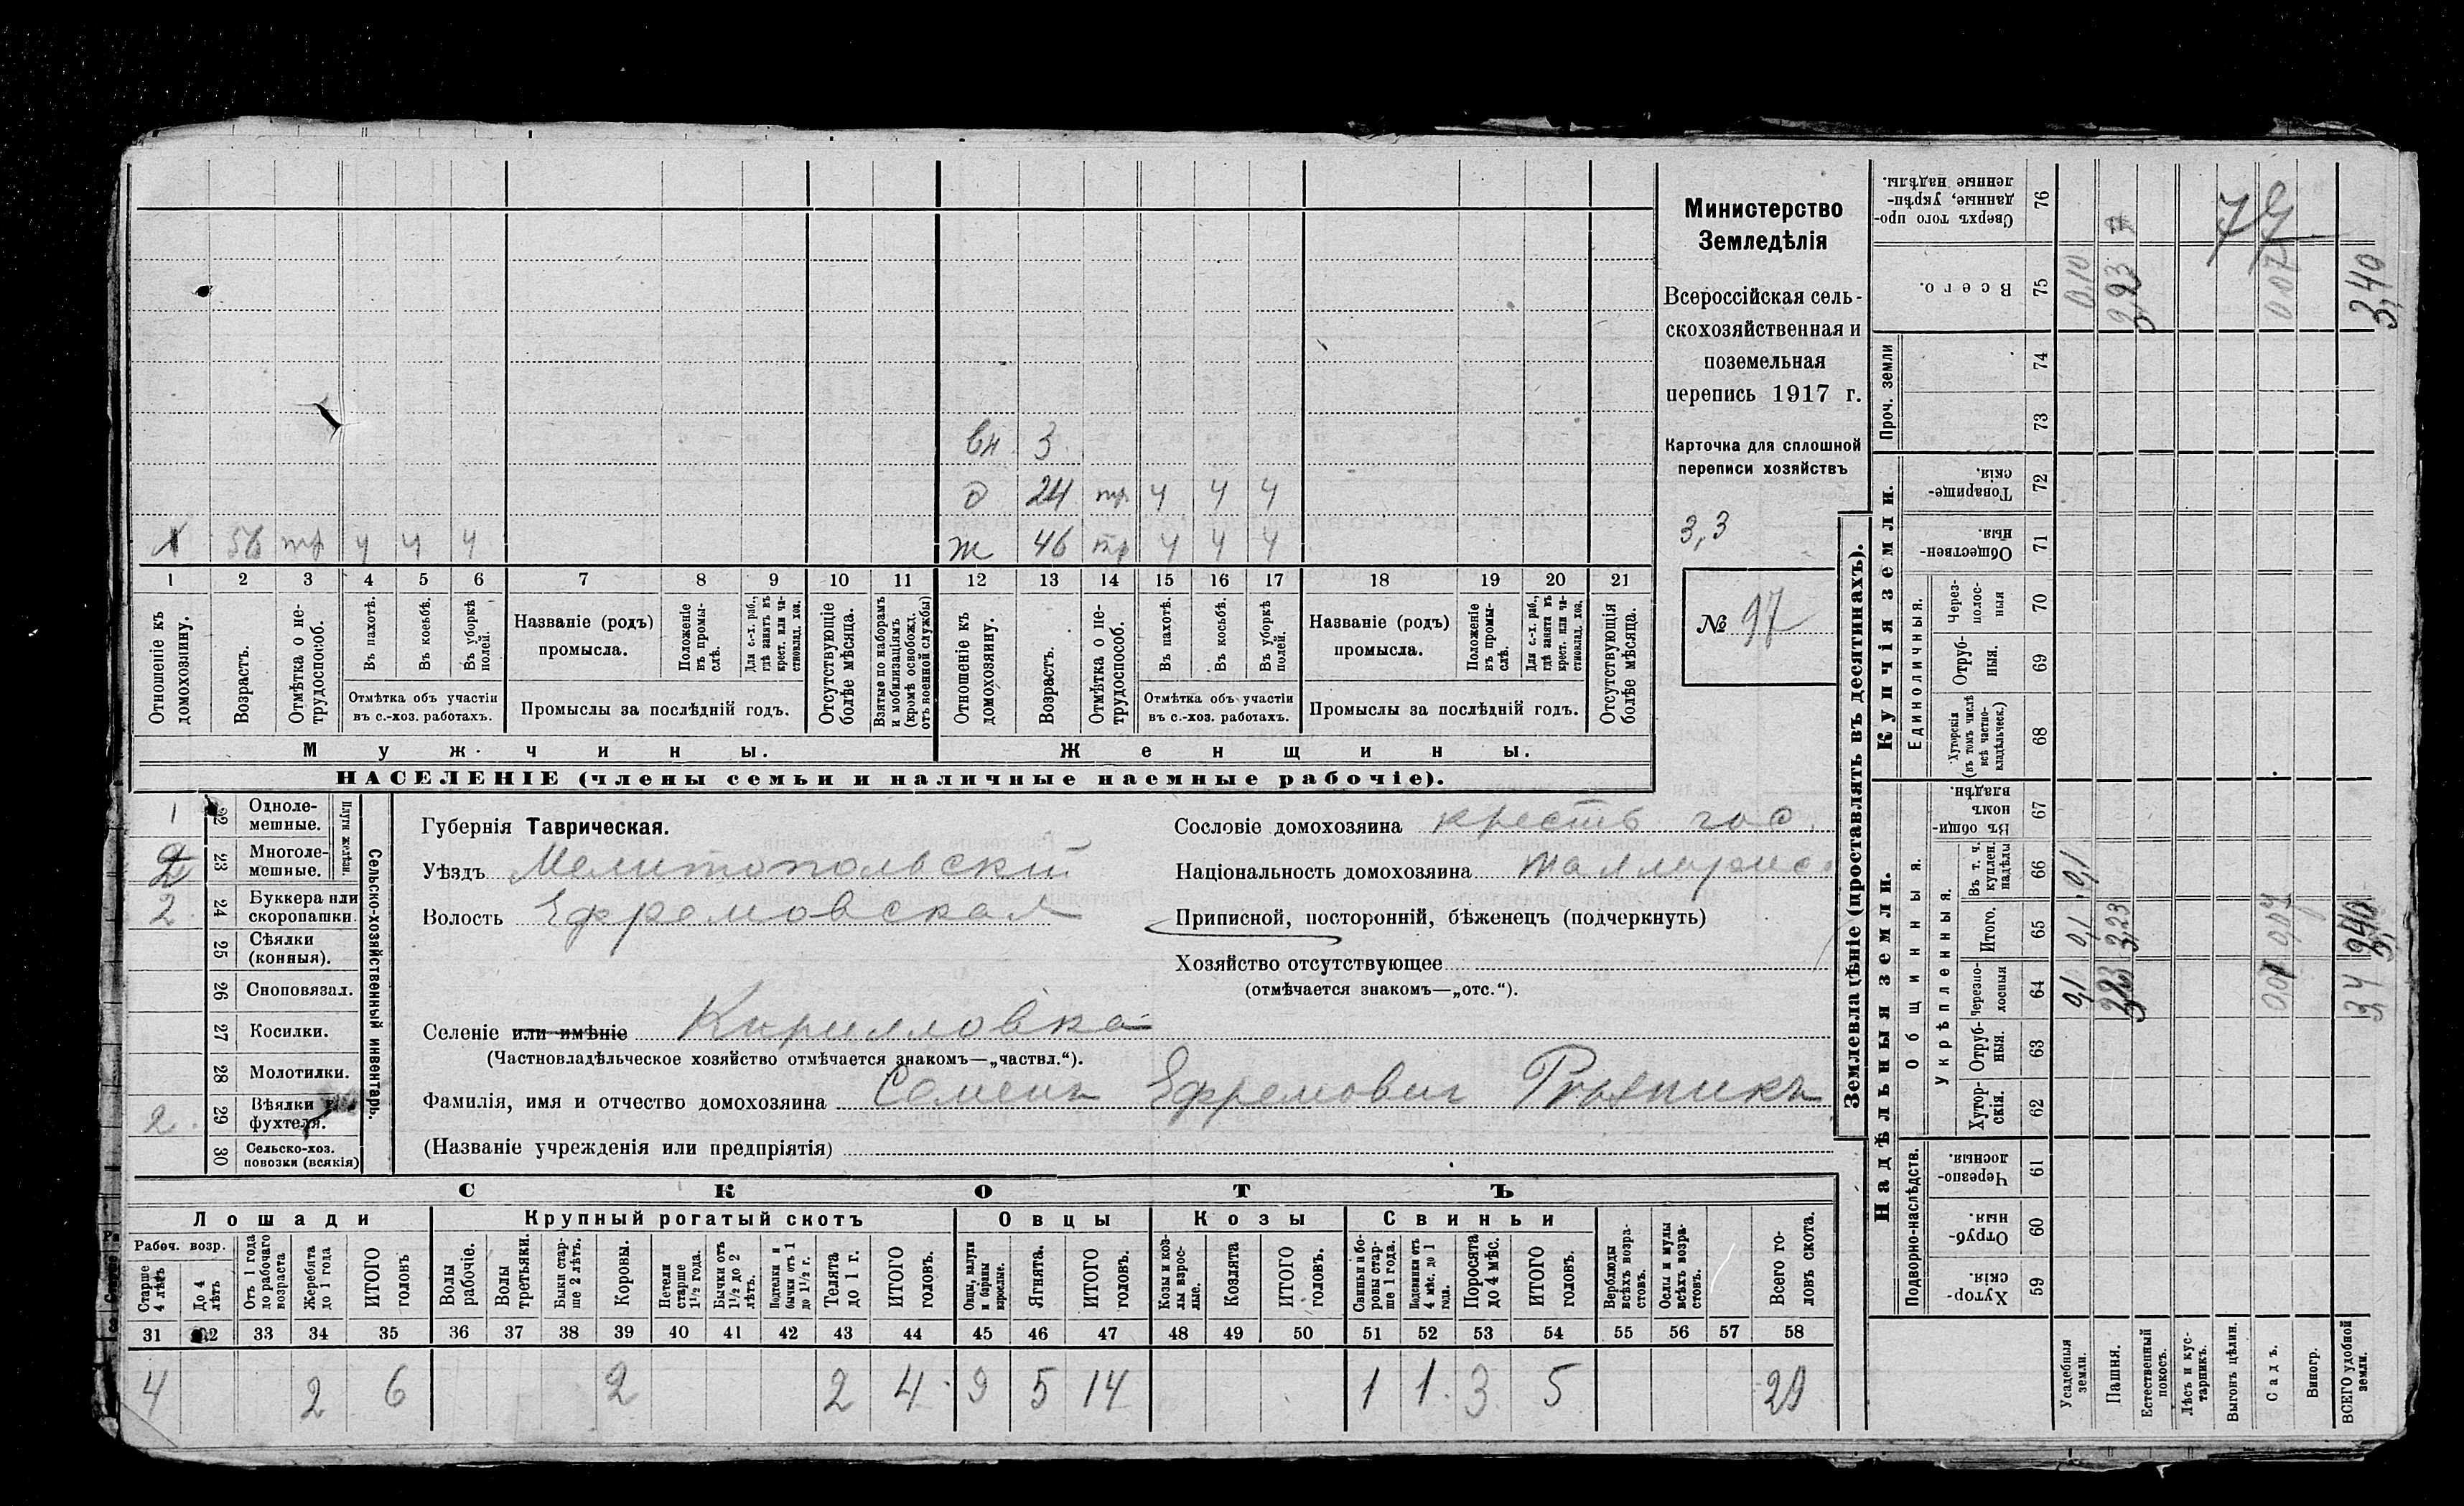 вн 3
д 24 тр ч ч ч
Х 56 тр ч ч ч
ж 46 тр ч ч ч
1 2 3 4 5 6 7 8 9 10 11 12 13 14 15 16 17 18 19 20 21
Отношеніе къ домохозяину.
Возрастъ.
Отмѣтка о нетрудоспособ.
Въ пахотѣ.
Въ косьбѣ.
Въ уборкѣ полей.
Отмѣтка объ участіи въ с.-хоз. работахъ.
Названіе (родъ) промысла.
Положеніе въ промыслѣ.
Для с.-х. раб., гдѣ занятъ въ крест. или частновлад. хоз.
Промыслы за послѣдній годъ.
Отсутствующіе болѣе мѣсяца.
Взятые по наборамъ и мобилизаціямъ (кромѣ освобожд. отъ военной службы)
Отношеніе къ домохозяину.
Возрастъ.
Отмѣтка о нетрудоспособ.
Въ пахотѣ.
Въ косьбѣ.
Въ уборкѣ полей.
Отмѣтка объ участіи въ с.-хоз. работахъ.
Названіе (родъ) промысла.
Положеніе въ промыслѣ.
Для с.-х. раб., гдѣ занята въ крест. или частновлад. хоз.
Промыслы за послѣдній годъ.
Отсутствующія болѣе мѣсяца.
Мужчины.
Женщины.
НАСЕЛЕНІЕ (члены семьи и наличные наемные рабочіе).
Министерство
Земледѣлія
Всероссійская сель-
скохозяйственная и
поземельная
перепись 1917 г.
Карточка для сплошной
переписи хозяйствъ
3,3
№ 17
1 22 Одноле-
мешные.
2 23 Многоле-
мешные.
Плуги желѣзн.
2 24 Буккера или
скоропашки.
25 Сѣялки
(конныя).
26 Сноповязал.
27 Косилки.
28 Молотилки.
2 29 Вѣялки и
фухтеля.
30 Сельско-хоз.
повозки (всякія)
Сельско-хозяйственный инвентарь.
Губернія Таврическая.
Уѣздъ Мелитопольскій
Волость Ефремовская
Сословіе домохозяина крестъ гос.
Національность домохозяина
Приписной, посторонній, бѣженецъ (подчеркнуть)
Хозяйство отсутствующее
(отмѣчается знакомъ—„отс.“).
Селеніе или имѣніе Кирилловка
(Частновладѣльческое хозяйство отмѣчается знакомъ—„частвл.“).
Фамилія, имя и отчество домохозяина Семенъ Ефремовичъ
(Названіе учрежденія или предпріятія)
СКОТЪ
Лошади
Крупный рогатый скотъ
Овцы
Козы
Свиньи
Рабоч. возр.
Старше 4 лѣтъ
До 4 лѣтъ
Отъ 1 года до рабочаго возраста
Жеребята до 1 года
ИТОГО головъ
Волы рабочіе.
Волы третьяки.
Быки старше 2 лѣтъ.
Коровы.
Нетели старше 1½ года.
Бычки отъ 1½ до 2 лѣтъ.
Подтелки и бычки отъ 1 до 1½ г.
Телята до 1 г.
ИТОГО головъ.
Овцы, валухи и бараны взрослые.
Ягнята.
ИТОГО головъ.
Козы и козлы взрослые.
Козлята
ИТОГО головъ.
Свиньи и боровы старше 1 года.
Подсвинки отъ 4 мѣс. до 1 года.
Поросята до 4 мѣс.
ИТОГО головъ.
Верблюды всѣхъ возрастовъ.
Ослы и мулы всѣхъ возрастовъ.
Всего головъ скота.
31 32 33 34 35 36 37 38 39 40 41 42 43 44 45 46 47 48 49 50 51 52 53 54 55 56 57 58
4 2 6 2 2 4 9 5 14 1 1 3 5 29
Землевладѣніе (проставлять въ десятинахъ).
Надѣльныя земли.
Купчія земли.
Проч. земли
Подворно-наслѣдств.
Общинныя.
Укрѣпленныя.
Единоличныя.
Хуторскія. 59
Отрубныя. 60
Черезполосныя 61
Хуторскія. 62
Отрубныя. 63
Черезполосныя 64
Итого. 65
Въ т. ч. куплен. надѣлы 66
Въ общинномъ владѣн. 67
Хуторскія (въ томъ числѣ всѣ частновладѣльческ.) 68
Отрубныя. 69
Черезполосныя 70
Общественныя. 71
Товарищескія. 72
73
74
Всего. 75
Сверхъ того проданные, укрѣпленные надѣлы. 76
Усадебныя земли. 0,1 0,1 0,1 0,10
Пашня. 3,23 3,23 3,23
Естественный покосъ.
Лѣсъ и кустарникъ.
Выгонъ цѣлин.
Садъ. 0,07 0,07 0,07
Виногр.
ВСЕГО удобной земли. 3,4 3,40 3,40